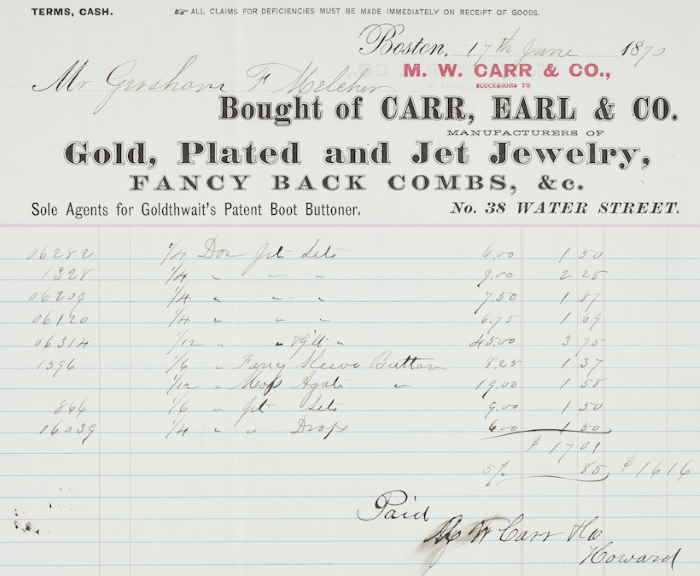 TERMS, CASH. ALL CLAIMS FOR DEFICIENCIES MUST BE MADE IMMEDIATELY ON RECEIPT OF GOODS.
Boston, 17th June 1870
Mr Gersham F Melcher
M. W. CARR & CO.,
SUCCESSORS TO
Bought of CARR, EARL & CO.
MANUFACTURERS OF
Gold, Plated and Jet Jewelry,
FANCY BACK COMBS, &c.
Sole Agents for Goldthwait's Patent Boot Buttoner. No. 38 WATER STREET.
06282 1/4 Doz Jet Sets 6.00 1 50
1328 1/4 " " " 9.00 2 25
06209 1/4 " " " 7.50 1 87
06120 1/4 " " " 6.75 1 69
06314 1/12 " " " 45.00 3 75
1396 1/6 " Fancy Sleeve Button 8.25 1 37
1/12 " Moss Agate " 19.00 1 58
866 1/6 " Jet Sets 9.00 1 50
16039 1/4 " " Drops 6.00 1 50
$ 17 01
5% 85 $ 16 16
Paid
M W Carr & Co
Howard